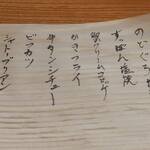 のどぐろ
すっぽん塩焼
蟹クリームコロッケ
かきフライ
牛タンシチュー
ビフカツ
シャトーブリアン